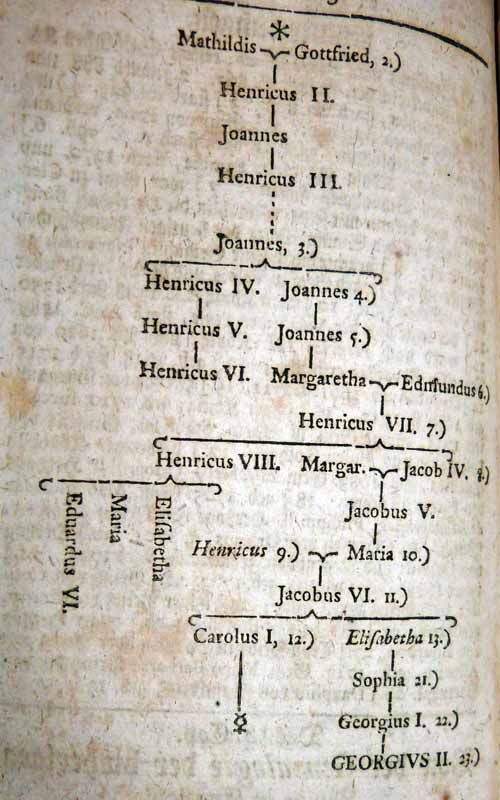 Mathildis Gottfried, 2.)
Henricus II.
Joannes
Henricus III.
Joannes, 3.)
Henricus IV. Joannes 4.)
Henricus V. Joannes 5.)
Henricus VI. Margaretha Edmundus 6.)
Henricus VII. 7.)
Henricus VIII. Margar. Jacob IV. 8.)
Eduardus VI.
Maria
Eliſabetha
Jacobus V.
Henricus 9.) Maria 10.)
Jacobus VI. 11.)
Carolus I, 12.) Eliſabetha 13.)
Sophia 21.)
Georgius I. 22.)
GEORGIVS II. 23.)